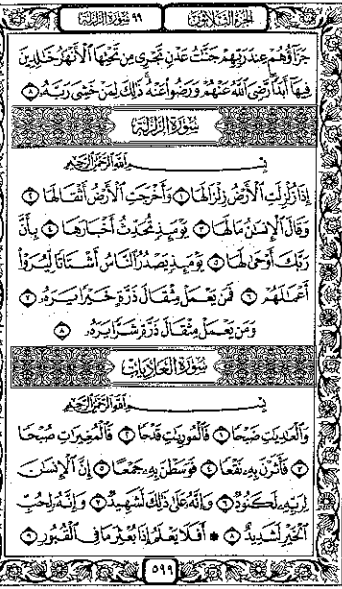 الجزء الثلاثون ٩٩ سورة الزلزلة
جَزَآؤُهُمْ عِندَ رَبِّهِمْ جَنَّٰتُ عَدْنٍ تَجْرِى مِن تَحْتِهَا ٱلْأَنْهَٰرُ خَٰلِدِينَ
فِيهَآ أَبَدًا رَّضِىَ ٱللَّهُ عَنْهُمْ وَرَضُوا۟ عَنْهُ ذَٰلِكَ لِمَنْ خَشِىَ رَبَّهُۥ ٨
سورة الزلزلة
بِسْمِ ٱللَّهِ ٱلرَّحْمَٰنِ ٱلرَّحِيمِ
إِذَا زُلْزِلَتِ ٱلْأَرْضُ زِلْزَالَهَا ١ وَأَخْرَجَتِ ٱلْأَرْضُ أَثْقَالَهَا ٢
وَقَالَ ٱلْإِنسَٰنُ مَا لَهَا ٣ يَوْمَئِذٍ تُحَدِّثُ أَخْبَارَهَا ٤ بِأَنَّ
رَبَّكَ أَوْحَىٰ لَهَا ٥ يَوْمَئِذٍ يَصْدُرُ ٱلنَّاسُ أَشْتَاتًا لِّيُرَوْا۟
أَعْمَٰلَهُمْ ٦ فَمَن يَعْمَلْ مِثْقَالَ ذَرَّةٍ خَيْرًا يَرَهُۥ ٧
وَمَن يَعْمَلْ مِثْقَالَ ذَرَّةٍ شَرًّا يَرَهُۥ ٨
سورة العاديات
بِسْمِ ٱللَّهِ ٱلرَّحْمَٰنِ ٱلرَّحِيمِ
وَٱلْعَٰدِيَٰتِ ضَبْحًا ١ فَٱلْمُورِيَٰتِ قَدْحًا ٢ فَٱلْمُغِيرَٰتِ صُبْحًا
٣ فَأَثَرْنَ بِهِۦ نَقْعًا ٤ فَوَسَطْنَ بِهِۦ جَمْعًا ٥ إِنَّ ٱلْإِنسَٰنَ
لِرَبِّهِۦ لَكَنُودٌ ٦ وَإِنَّهُۥ عَلَىٰ ذَٰلِكَ لَشَهِيدٌ ٧ وَإِنَّهُۥ لِحُبِّ
ٱلْخَيْرِ لَشَدِيدٌ ٨ * أَفَلَا يَعْلَمُ إِذَا بُعْثِرَ مَا فِى ٱلْقُبُورِ ٩
٥٩٩